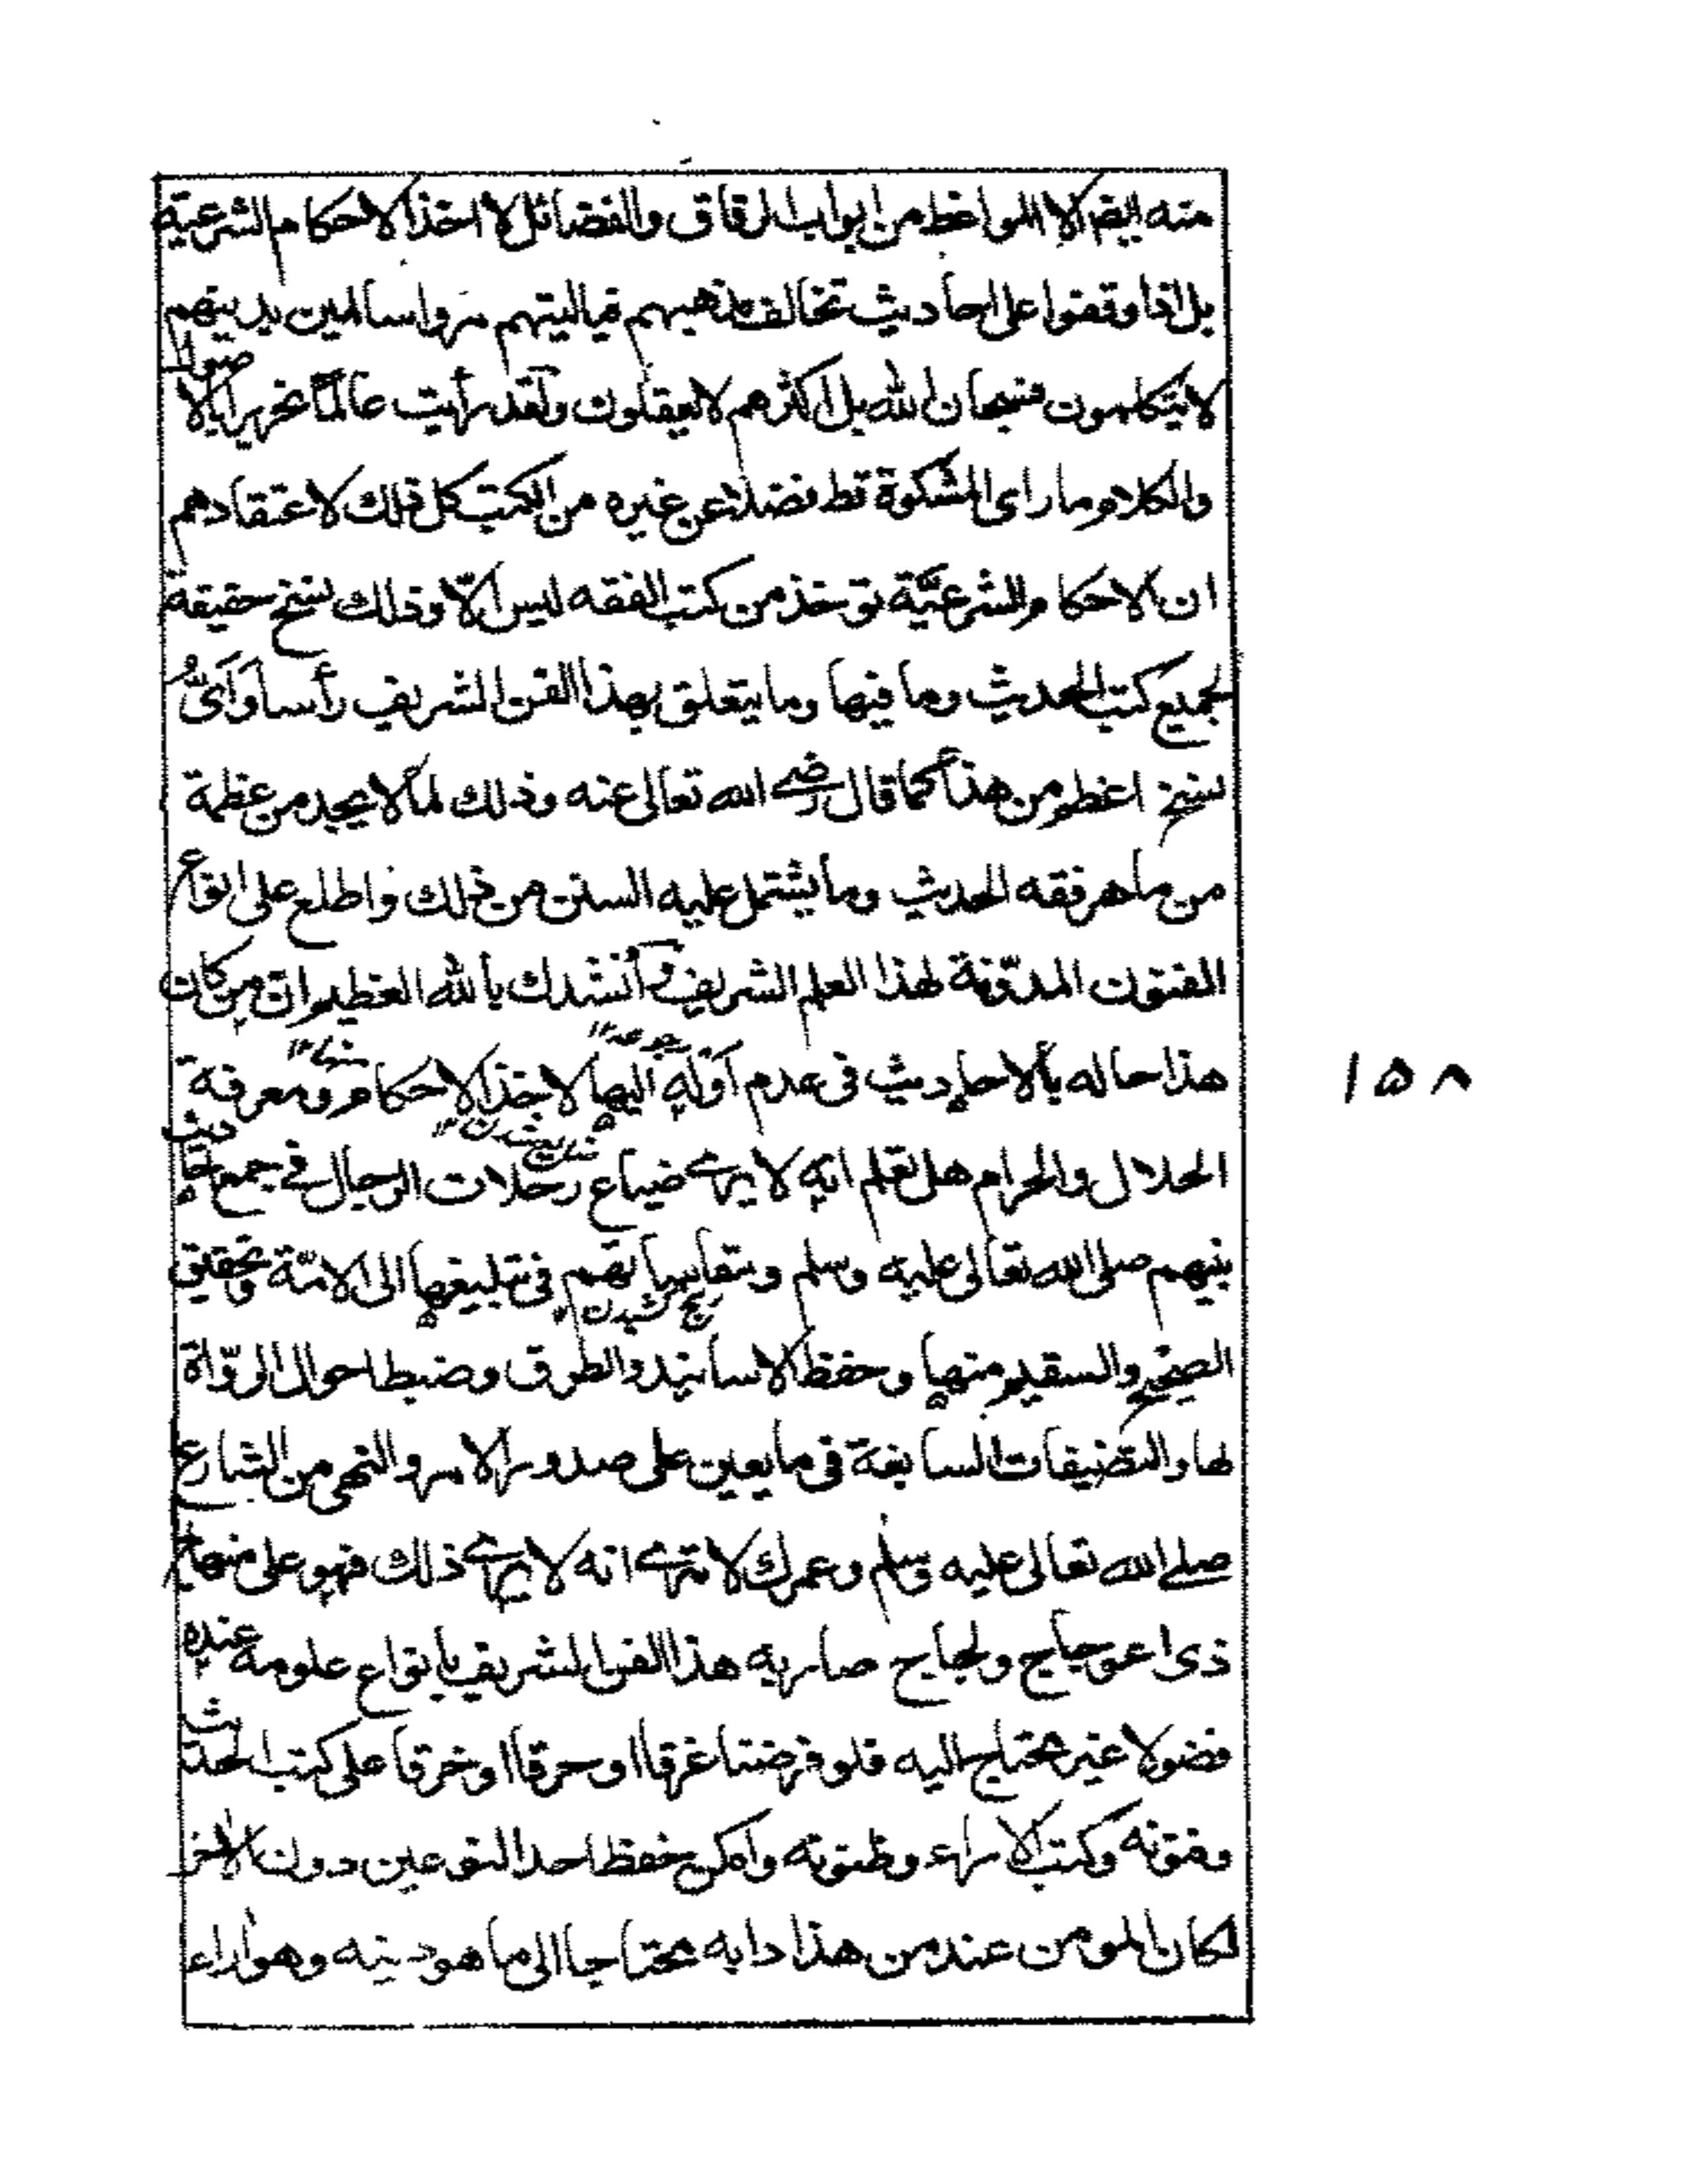 منه ايضا الا المواعظ من ابواب الرقاق والفضائل لا اخذ الاحكام الشرعية
بل اذا وقفوا على احاديث تخالف مذهبهم فياليتهم مروا سالمين بدينهم
لا يتكلمون فسبحان الله بل اكثرهم لا يعقلون ولقد رأيت عالمًا نحريرا بالاصول
والكلام وما راى المشكوة قط فضلا عن غيره من الكتب كل ذلك لاعتقادهم
ان الاحكام الشرعيّة توخذ من كتب الفقه ليس الّا وذلك نسخ حقيقة
لجميع كتب الحديث وما فيها وما يتعلق بهذا الفن الشريف رأسا وَاَىُّ
نسخ اعظم من هذا كما قال رضى الله تعالى عنه وذلك لما لا يجد من عظمة
من ماهر فقه الحديث وما يشتمل عليه السنن من ذلك واطلع على انواع
الفنون المدوّنة لهذا العلم الشريف وأنشدك بالله العظيم ان من كان
هذا حاله بالاحاديث فى عدم اَوْلِهِ اليها لاخذ الاحكام ومعرفة
الحلال والحرام هل تعلم انه لا يرى ضياع رحلات الرجال فى جمع احاديث
نبيهم صلى الله تعالى عليه وسلم ومقاساتهم فى تبليغها الى الامّة وتحقيق
رنج كشيدن
الصحيح والسقيم منها وحفظ الاسانيد والطرق وضبط احوال الروّاة
لها والتصنيفات السابغة فى ما يعين على صدور الامر والنهى من الشارع
صلى الله تعالى عليه وسلم وعمرك لا ترى انه لا يرى ذلك فهو على منهاج
ذى اعوجاج ولجاج صار به هذا الفن الشريف بانواع علومه عنده
فضولا غير محتاج اليه فلو فرضنا غرقا او حرقا او خرقا على كتب الحديث
وفنونه وكتب الاراء وظنونه وامكن حفظ احد النوعين دون الاخر
لكان المومن عند من هذا دابه محتاجا الى ما هو دينه وهو اراء
۱۵۸